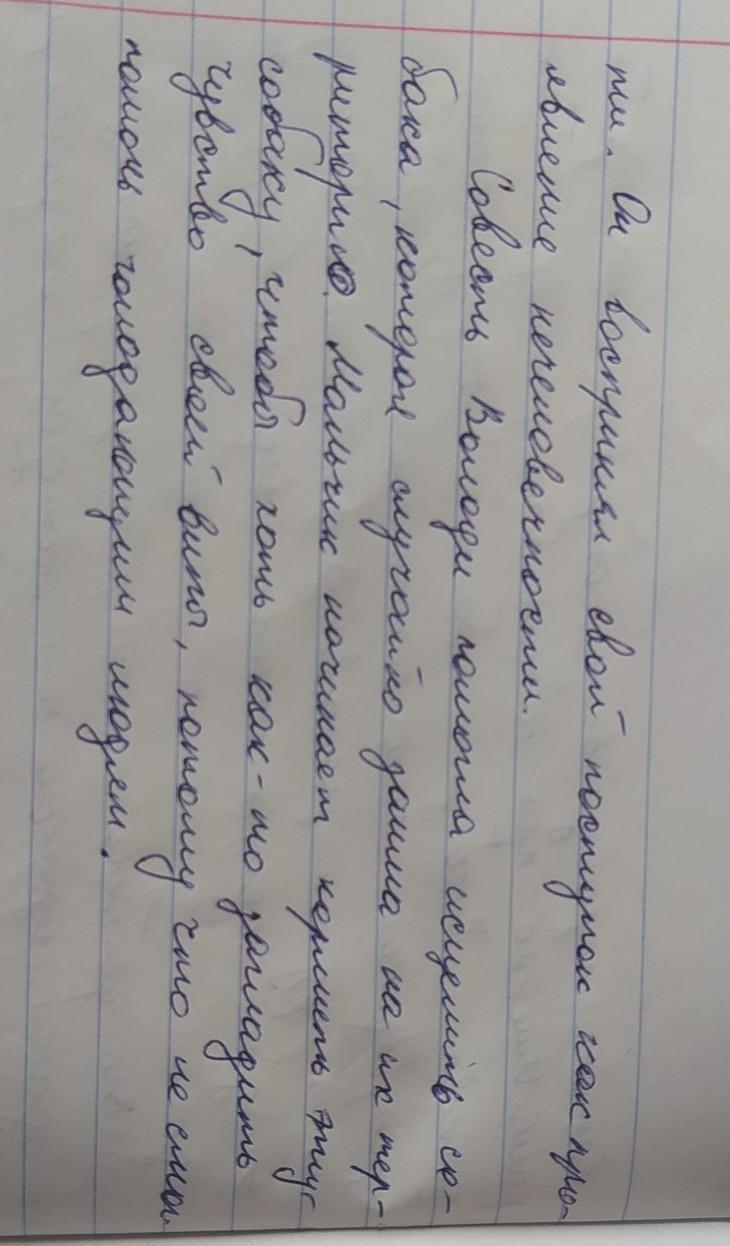 ти. Он воспринял свой поступок как про-
явление нечеловечности.
Совесть Володи помогла исцелить со-
бака, которая случайно зашла на их тер-
риторию. Мальчик начинает кормить эту
собаку, чтобы хоть как-то загладить
чувство своей вины, потому что не смог
помочь голодающим людям.